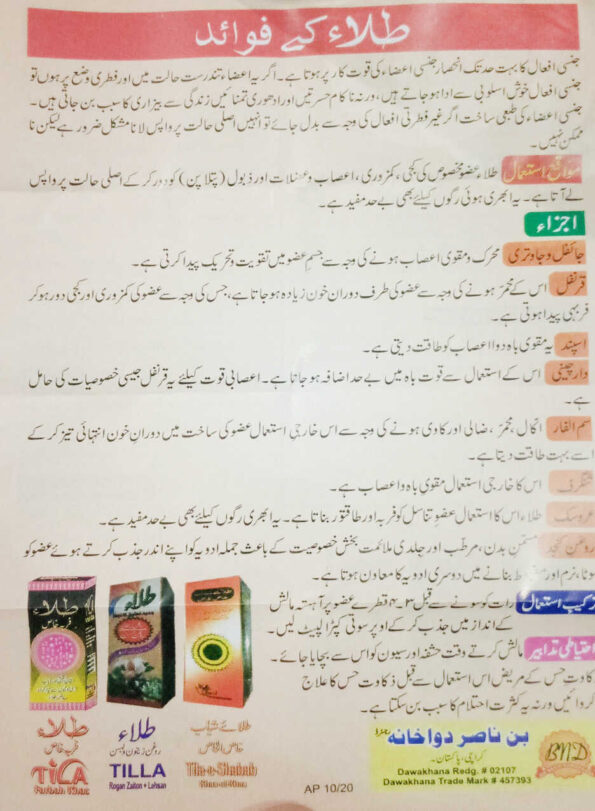 طلاء کے فوائد
جنسی افعال کا بہت حد تک انحصار جنسی اعضاء کی قوت کار پر ہوتا ہے۔ اگر یہ اعضاء تندرست حالت میں اور فطری وضع پر ہوں تو
جنسی افعال خوش اسلوبی سے ادا ہو جاتے ہیں، ورنہ ناکام حسرتیں اور ادھوری تمنائیں زندگی سے بیزاری کا سبب بن جاتی ہیں۔
جنسی اعضاء کی طبعی ساخت اگر غیر فطرتی افعال کی وجہ سے بدل جائے تو انہیں اصلی حالت پر واپس لانا مشکل ضرور ہے لیکن نا
ممکن نہیں۔
مواقع استعمال طلاء عضو مخصوص کی کجی، کمزوری، اعصاب و عضلات اور ذبول (پتلا پن) کو دور کر کے اصلی حالت پر واپس
لے آتا ہے۔ یہ ابھری ہوئی رگوں کیلئے بھی بے حد مفید ہے۔
اجزاء
جائفل و جاوتری محرک و مقوی اعصاب ہونے کی وجہ سے جسم عضو میں تقویت و تحریک پیدا کرتی ہے۔
قرنفل اس کے محمّر ہونے کی وجہ سے عضو کی طرف دوران خون زیادہ ہو جاتا ہے، جس کی وجہ سے عضو کی کمزوری اور کجی دور ہو کر
فربہی پیدا ہوتی ہے۔
اسپند یہ مقوی باہ دوا اعصاب کو طاقت دیتی ہے۔
دار چینی اس کے استعمال سے قوت باہ میں بے حد اضافہ ہو جاتا ہے۔ اعصابی قوت کیلئے یہ قرنفل جیسی خصوصیات کی حامل
ہے۔
سم الفار اکال، محمّر، ضالی اور کاوی ہونے کی وجہ سے اس خارجی استعمال عضو کی ساخت میں دوران خون انتہائی تیز کر کے
اسے بہت طاقت دیتا ہے۔
شنگرف اس کا خارجی استعمال مقوی باہ و اعصاب ہے۔
عروسک طلاء اس کا استعمال عضو تناسل کو فربہ اور طاقتور بناتا ہے۔ یہ ابھری رگوں کیلئے بھی بے حد مفید ہے۔
روغن کنجد مسمّن بدن، مرطب اور جلدی ملائمت بخش خصوصیت کے باعث جملہ ادویہ کو اپنے اندر جذب کرتے ہوئے عضو کو
موٹا، نرم اور بنانے میں دوسری ادویہ کا معاون ہوتا ہے۔
ترکیب استعمال رات کو سونے سے قبل ۳-۴ قطرے عضو پر آہستہ مالش
کے انداز میں جذب کر کے اوپر سوتی کپڑا لپیٹ لیں۔
احتیاطی تدابیر مالش کرتے وقت حشفہ اور سیون کو اس سے بچایا جائے۔
ذکاوت حس کے مریض اس استعمال سے قبل ذکاوت حس کا علاج
کروائیں ورنہ یہ کثرت احتلام کا سبب بن سکتا ہے۔
طلاء
قرب خاص
TiLA
Qurbah Khas
طلاء
روغن زیتون و لہسن
TILLA
Rogan Zaiton + Lehsan
طلائے شباب
خاص الخاص
Tila-e-Shabab
Khas-ul-Khas
بن ناصر دواخانہ رجسٹرڈ
کراچی، پاکستان۔
Dawakhana Redg. # 02107
Dawakhana Trade Mark # 457393
BND
AP 10/20